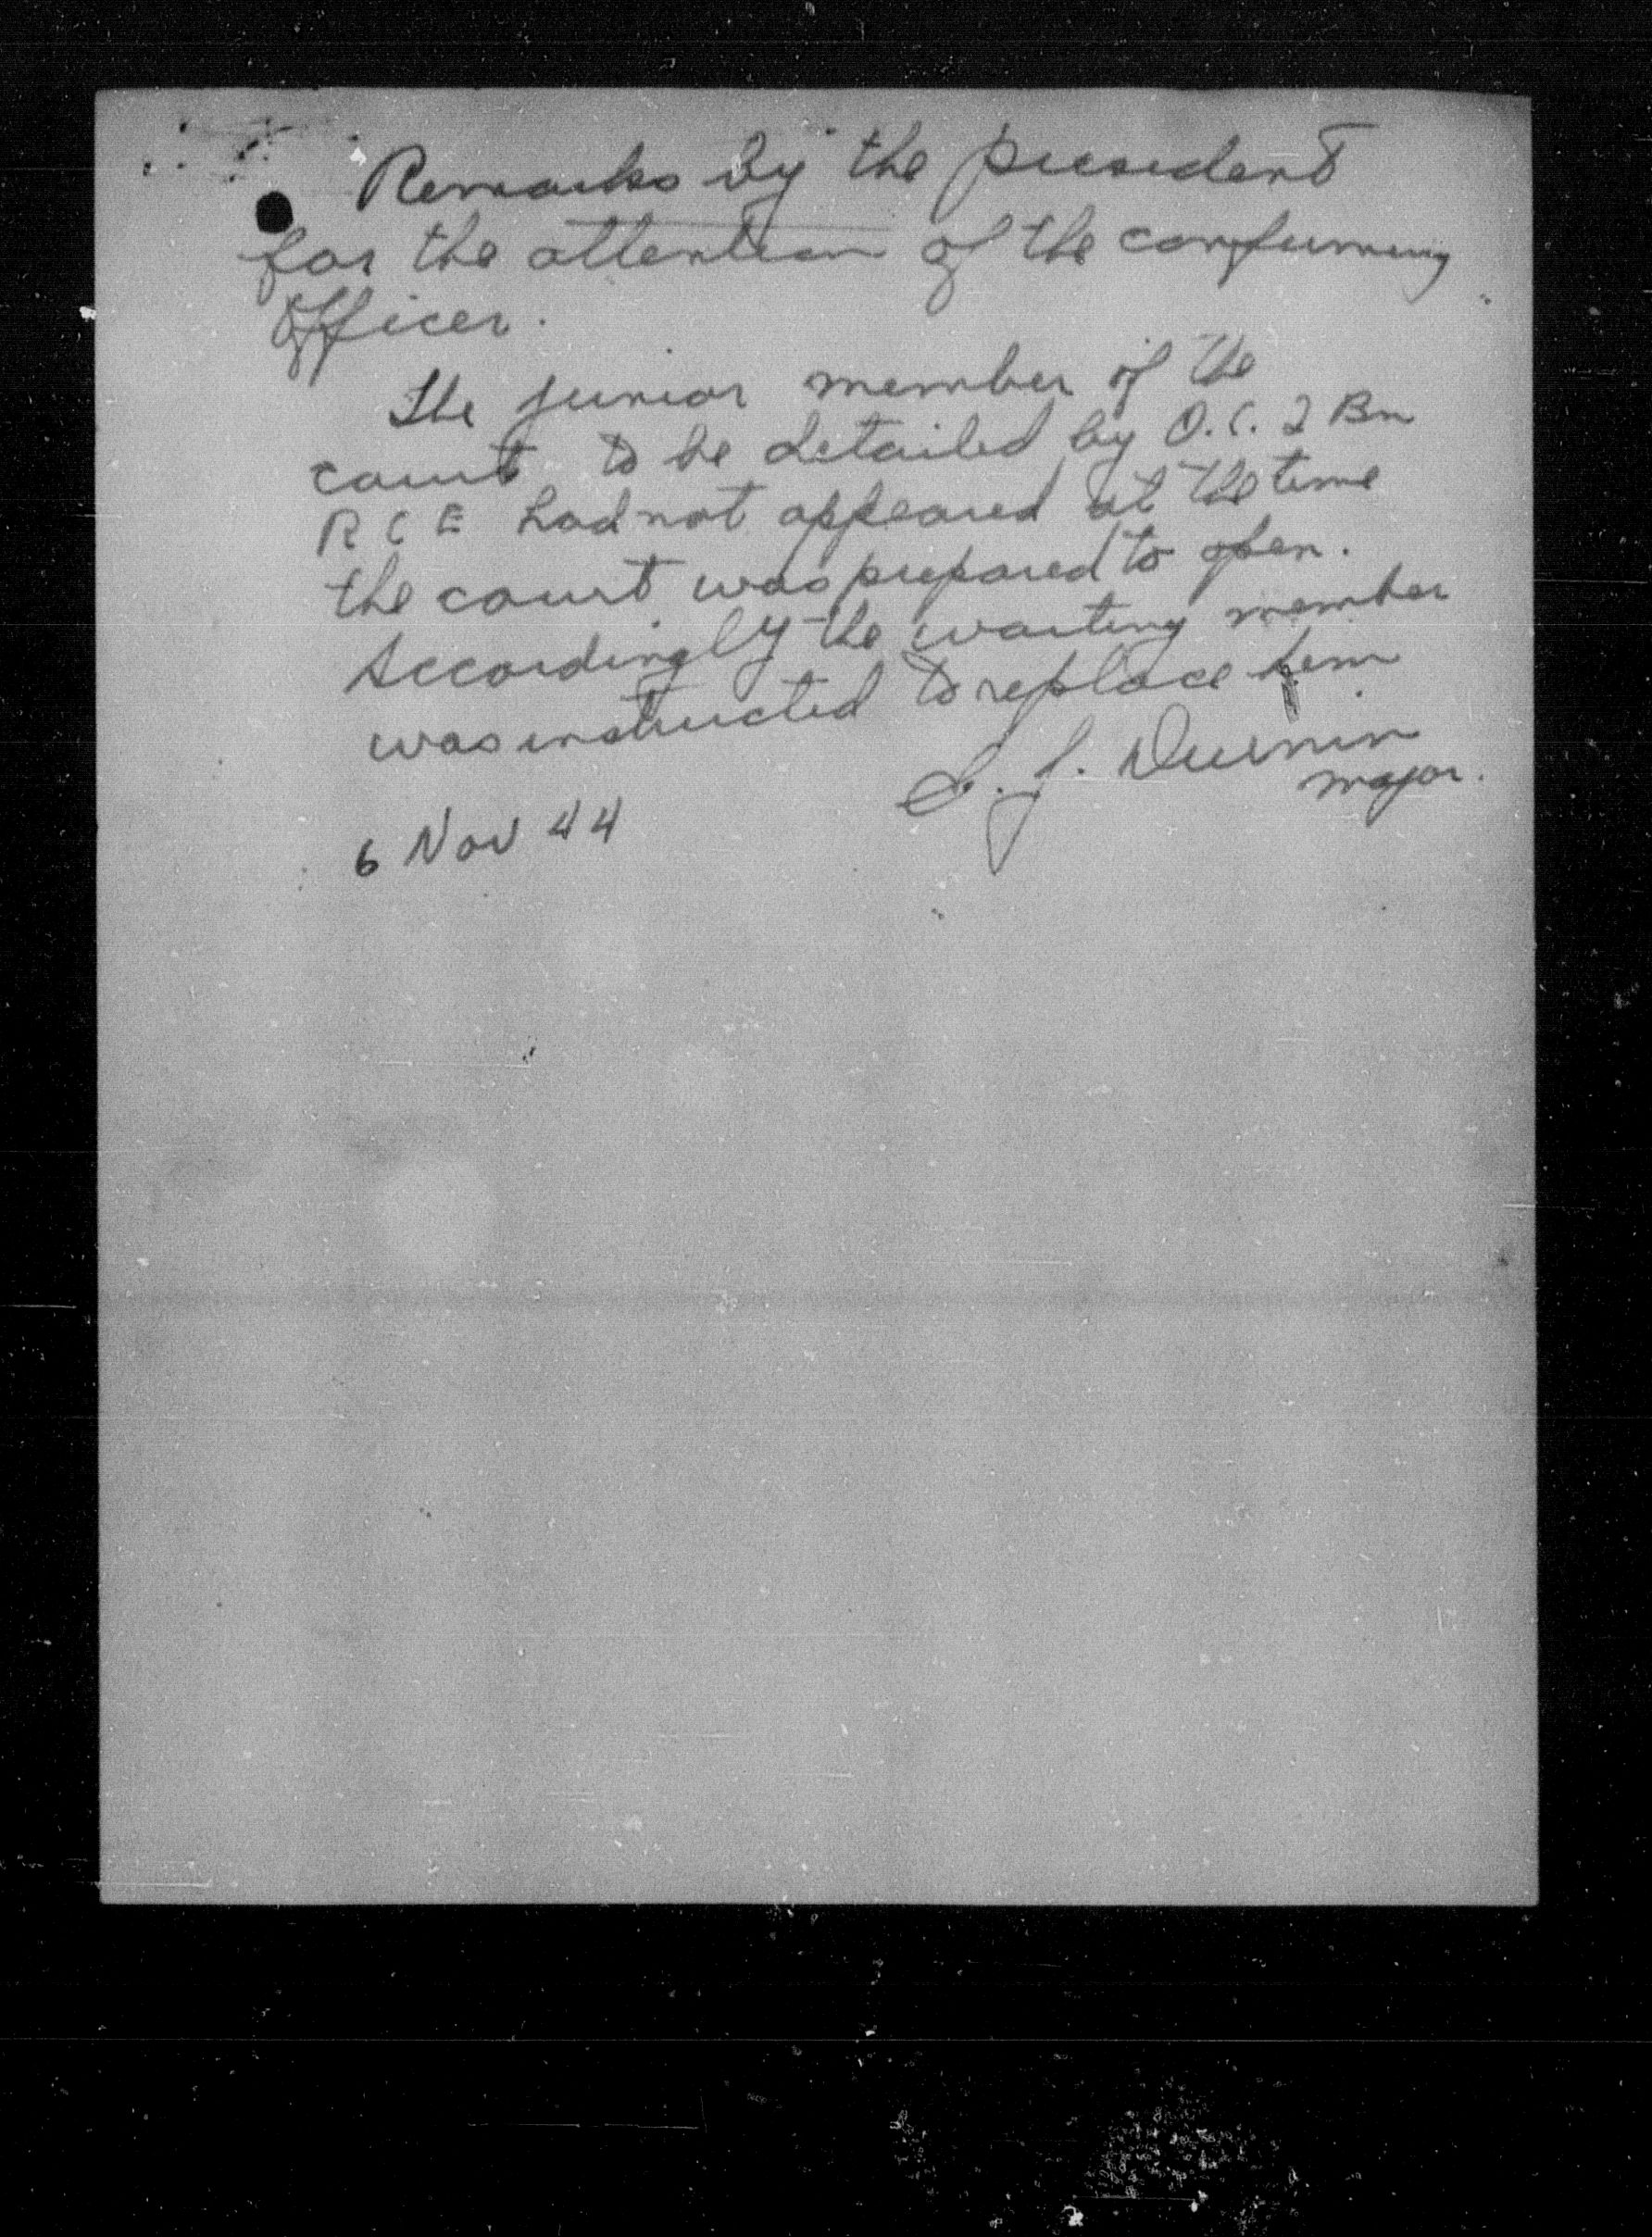 Remarks by the president
for the attention of the confirming
Officer.
The junior member of the
court to be detailed by O.C. 2 Bn
R C E had not appeared at the time
the court was prepared to open.
Accordingly the waiting member
was instructed to replace him
major.
6 Nov 44